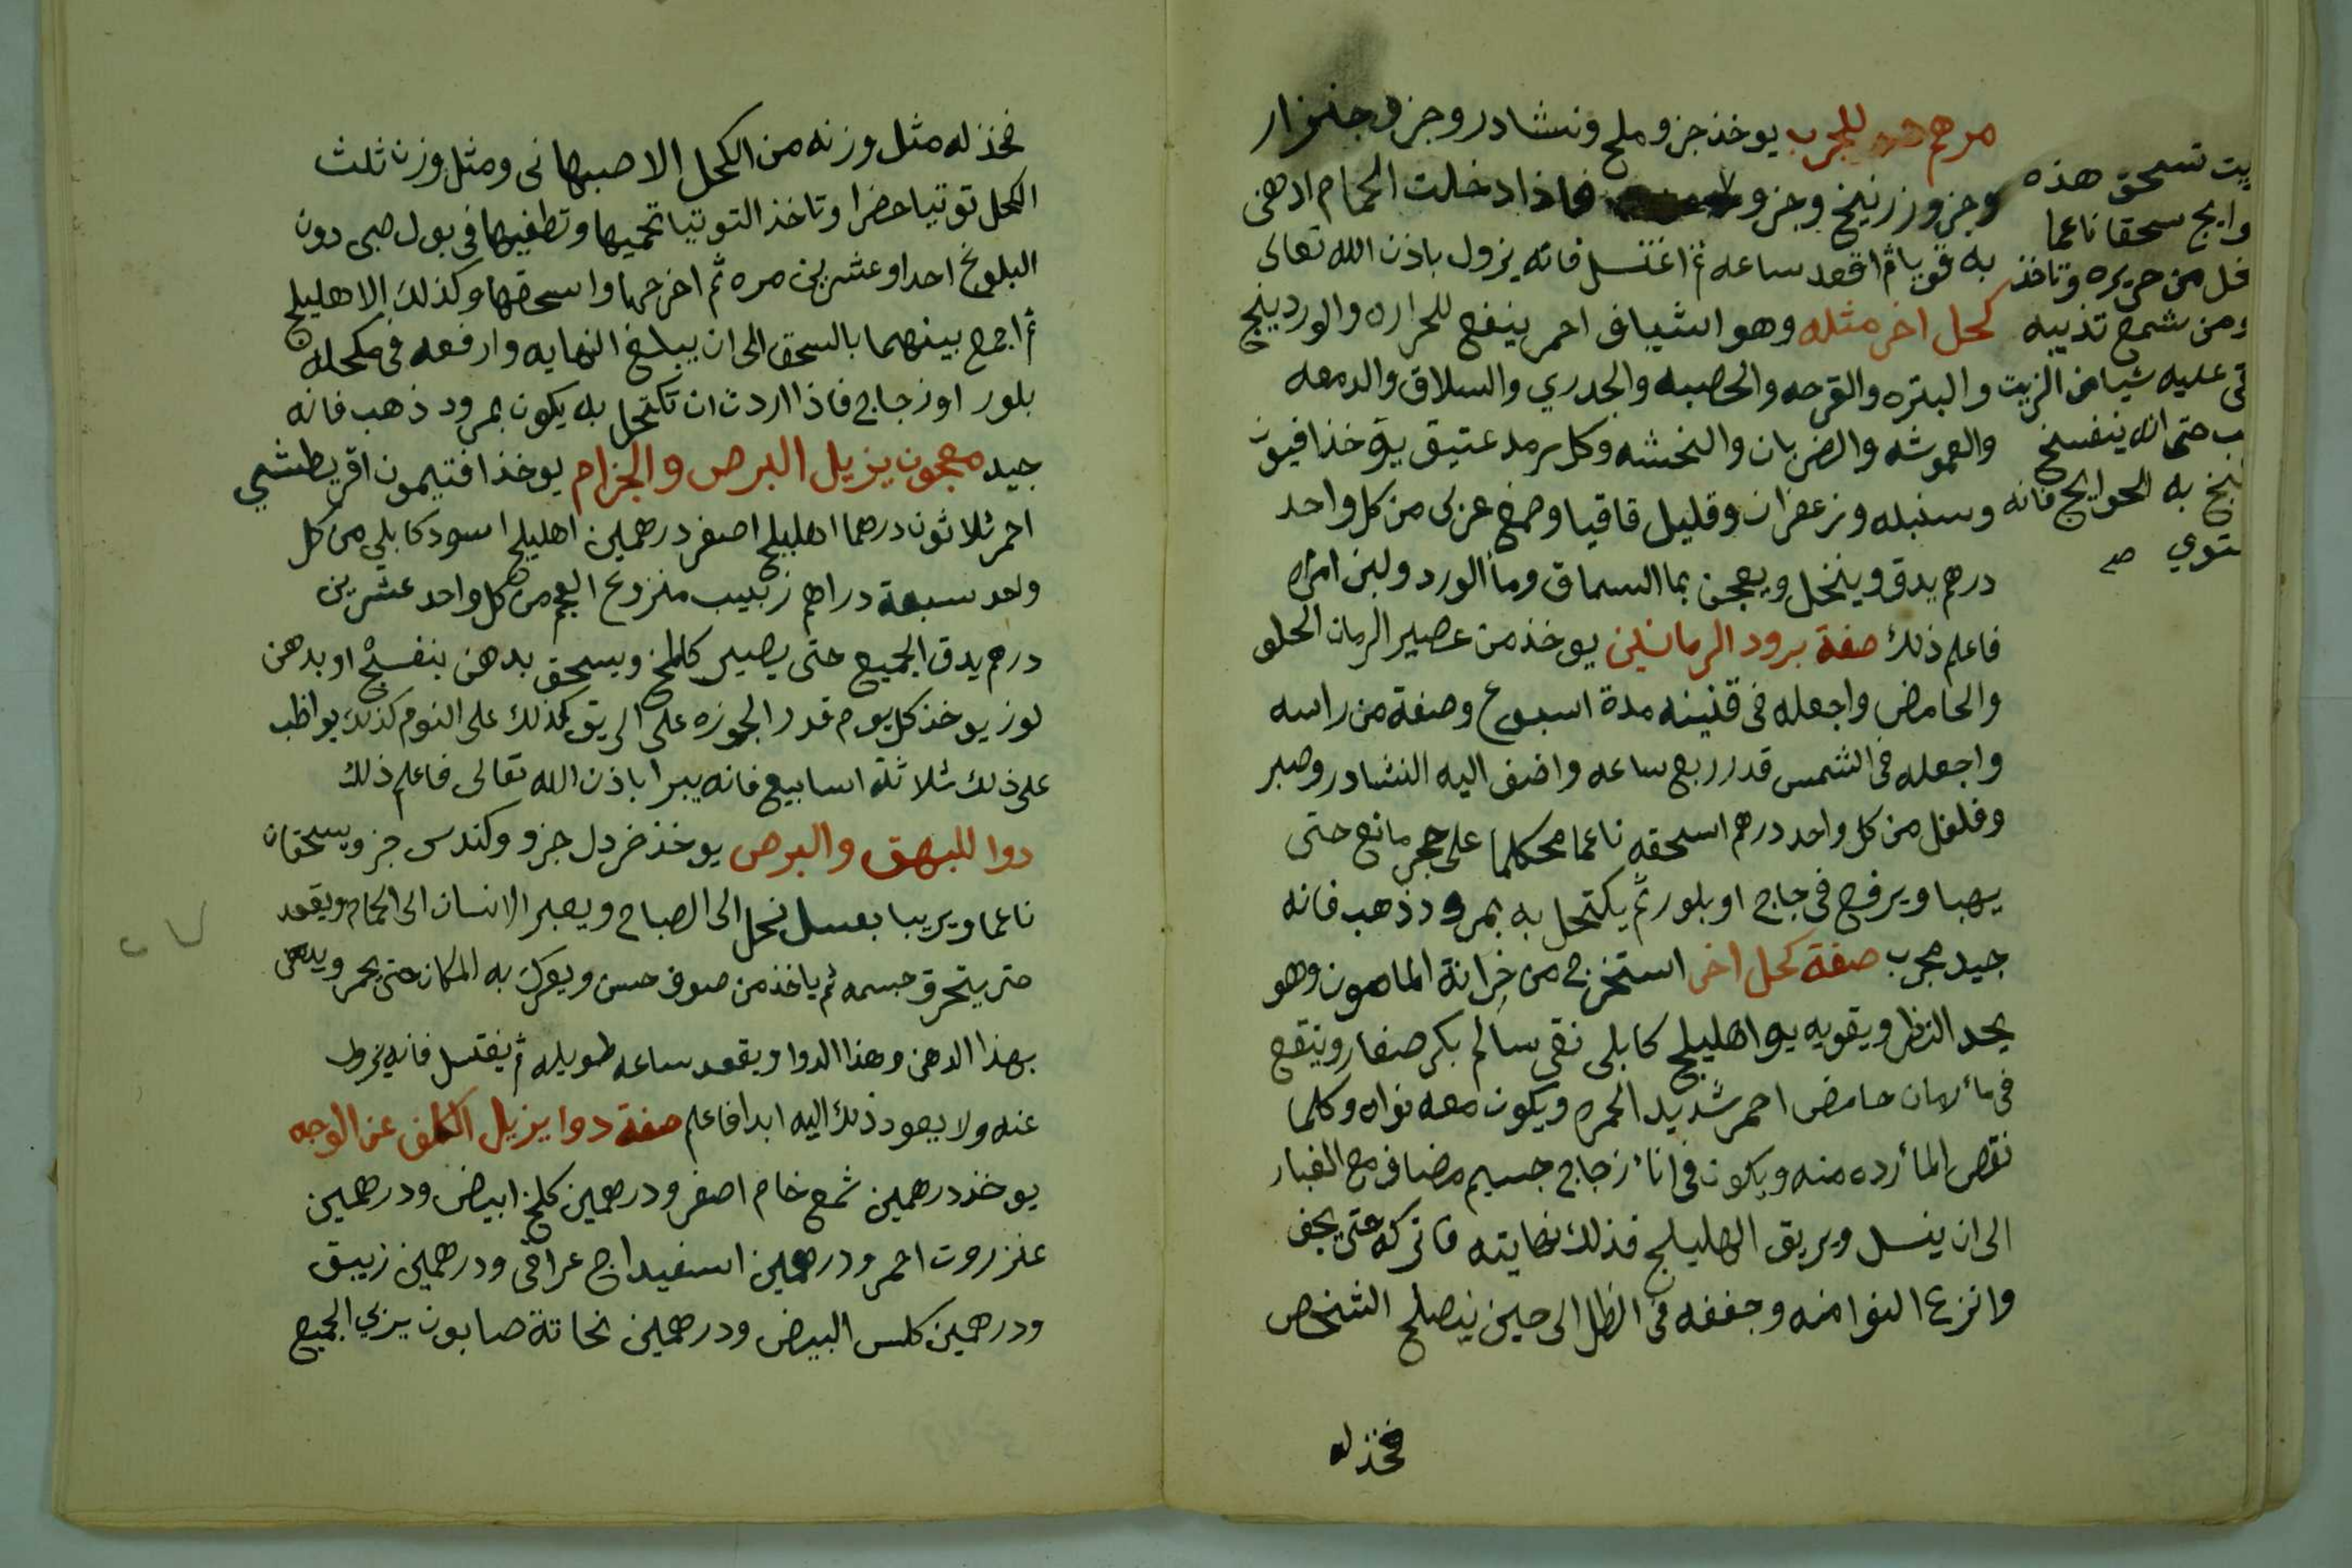 مرهم للجرب يوخذ جزو ملح ونشادر وجزو جنزار
وجزو زرنيخ وجزو فاذا دخلت الحمام ادهن
به قويا ثم اقعد ساعه ثم اغتسل فانه يزول باذن الله تعالى
كحل اخر مثله وهو اشياف احمر ينفع للحراره والوردينج
والبثره والقرحه والحصبه والجدري والسلاق والدمعه
والعموشه والضربان والنخشه وكل رمد عتيق يؤخذ افيون
وسنبله وزعفران وقليل قاقيا وصمغ عربى من كل واحد
درهم يدق وينخل ويعجن بما السماق وما الورد ولبن امراه
فاعلم ذلك صفة برود الرمانين يوخذ من عصير الرمان الحلو
والحامض واجعله فى قنينه مدة اسبوع وصفة من راسه
واجعله فى الشمس قدر ربع ساعه واضف اليه النشادر وصبر
وفلفل من كل واحد درهم اسحقه ناعما محكما على حجر مانع حتى
يهبا ويرفع فى جاج او بلور ثم يكتحل به بمرود ذهب فانه
جيد مجرب صفة كحل اخر استخرج من خزانة المامون وهو
يحد النظر ويقويه يو اهليلج كابلى نقى سالم بكر صغار وينقع
فى مآ رمان حامض احمر شديد الحمره ويكون معه نواه وكلما
نقص المآ زده منه ويكون فى انآ زجاج جسيم مضاف مع الغبار
الى ان ينسل ويريق الهليلج فذلك نهايته فاتركه حتى يجف
وانزع النوا منه وجففه فى الظل الى حين يصلح الشخص
فخذ له
يت تسحق هذه
وايج سحقا ناعما
خل من حريره وتاخذ
ومن شمع تذيبه
قى عليه شيا من الزيت
ب حتى انه ينفسخ
بخ به الحوايج فانه
ستوي صح
فخذ له مثل وزنه من الكحل الاصبهانى ومثل وزن ثلث
الكحل توتيا خضرا وتاخذ التوتيا تحميها وتطفيها فى بول صبى دون
البلوغ احدا وعشرين مره ثم اخرجها واسحقها وكذلك الاهليلج
ثم اجمع بينهما بالسحق الى ان يبلغ النهايه وارفعه فى مكحله
بلور او زجاج فاذا اردت ان تكتحل به يكون بمرود ذهب فانه
جيد معجون يزيل البرص والجزام يوخذ افتيمون اقريطشي
احمر ثلاثون درهما اهليلج اصفر درهمين اهليلج اسود كابلي من كل
واحد سبعة دراهم زبيب منزوع العجم من كل واحد عشرين
درهم يدق الجميع حتى يصير كالمخ ويسحق بدهن بنفسج او بدهن
لوز يوخذ كل يوم قدر الجوزه على الريق كذلك على النوم كذلك يواظب
على ذلك ثلاثة اسابيع فانه يبرا باذن الله تعالى فاعلم ذلك
دوا للبهق والبرص يوخذ خردل جزو وكندس جزو يسحقان
ناعما ويربيا بعسل نحل الى الصباح ويعبر الانسان الى الحمام ويقعد
حتى يتحرق جسمه ثم ياخذ من صوف حسن ويعرك به المكان حتى يحمر ويدهن
بهذا الدهن وهذا الدوا ويقعد ساعه طويله ثم يغتسل فانه يزول
عنه ولا يعود ذلك اليه ابدا فاعلم صفة دوا يزيل الكلف عن الوجه
يوخذ درهمين شمع خام اصفر ودرهمين كلخ ابيض ودرهمين
عنزروت احمر ودرهمين اسفيداج عراقى ودرهمين زيبق
ودرهمين كلس البيض ودرهمين نحاتة صابون يربي الجميع